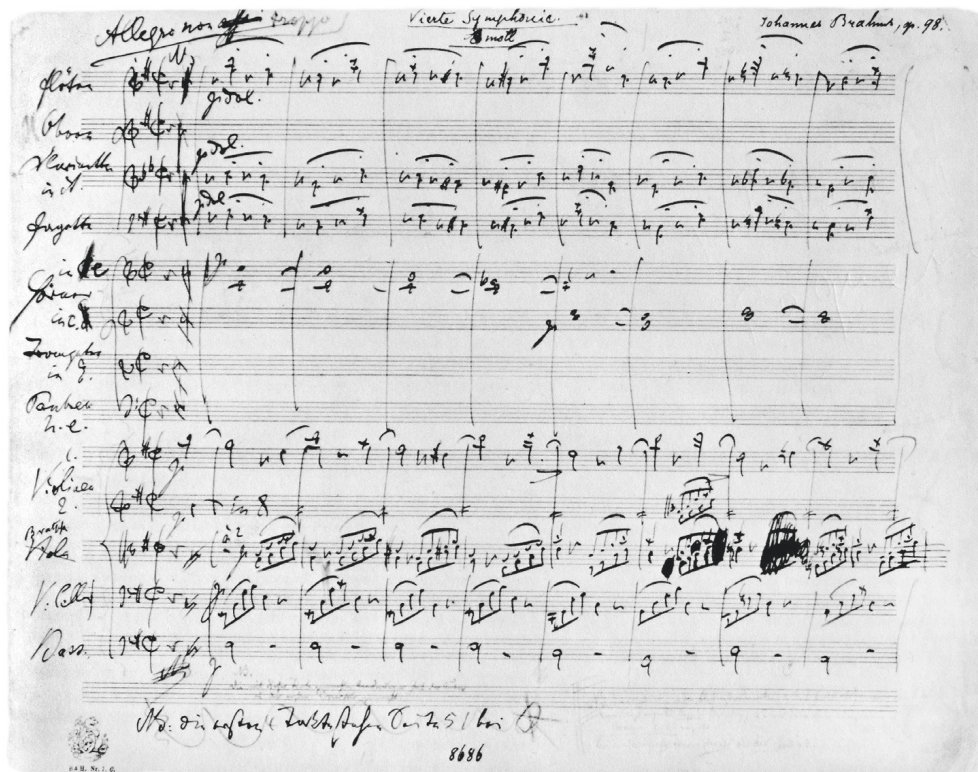 Allegro non assai troppo
Vierte Symphonie.
E moll
Johannes Brahms, op. 98.
Flöten
p dol.
Oboen
Klarinetten
in A.
p dol.
Fagotte
p dol.
in e
Hörner
in C.
Trompeten
in E.
Pauken
h. e.
1.
Violinen
2.
in 8
Bratsche
Viola
à 2
V. Celli
Bass.
p
NB: die ersten 4 Takte stehen Seite 51 bei
8686